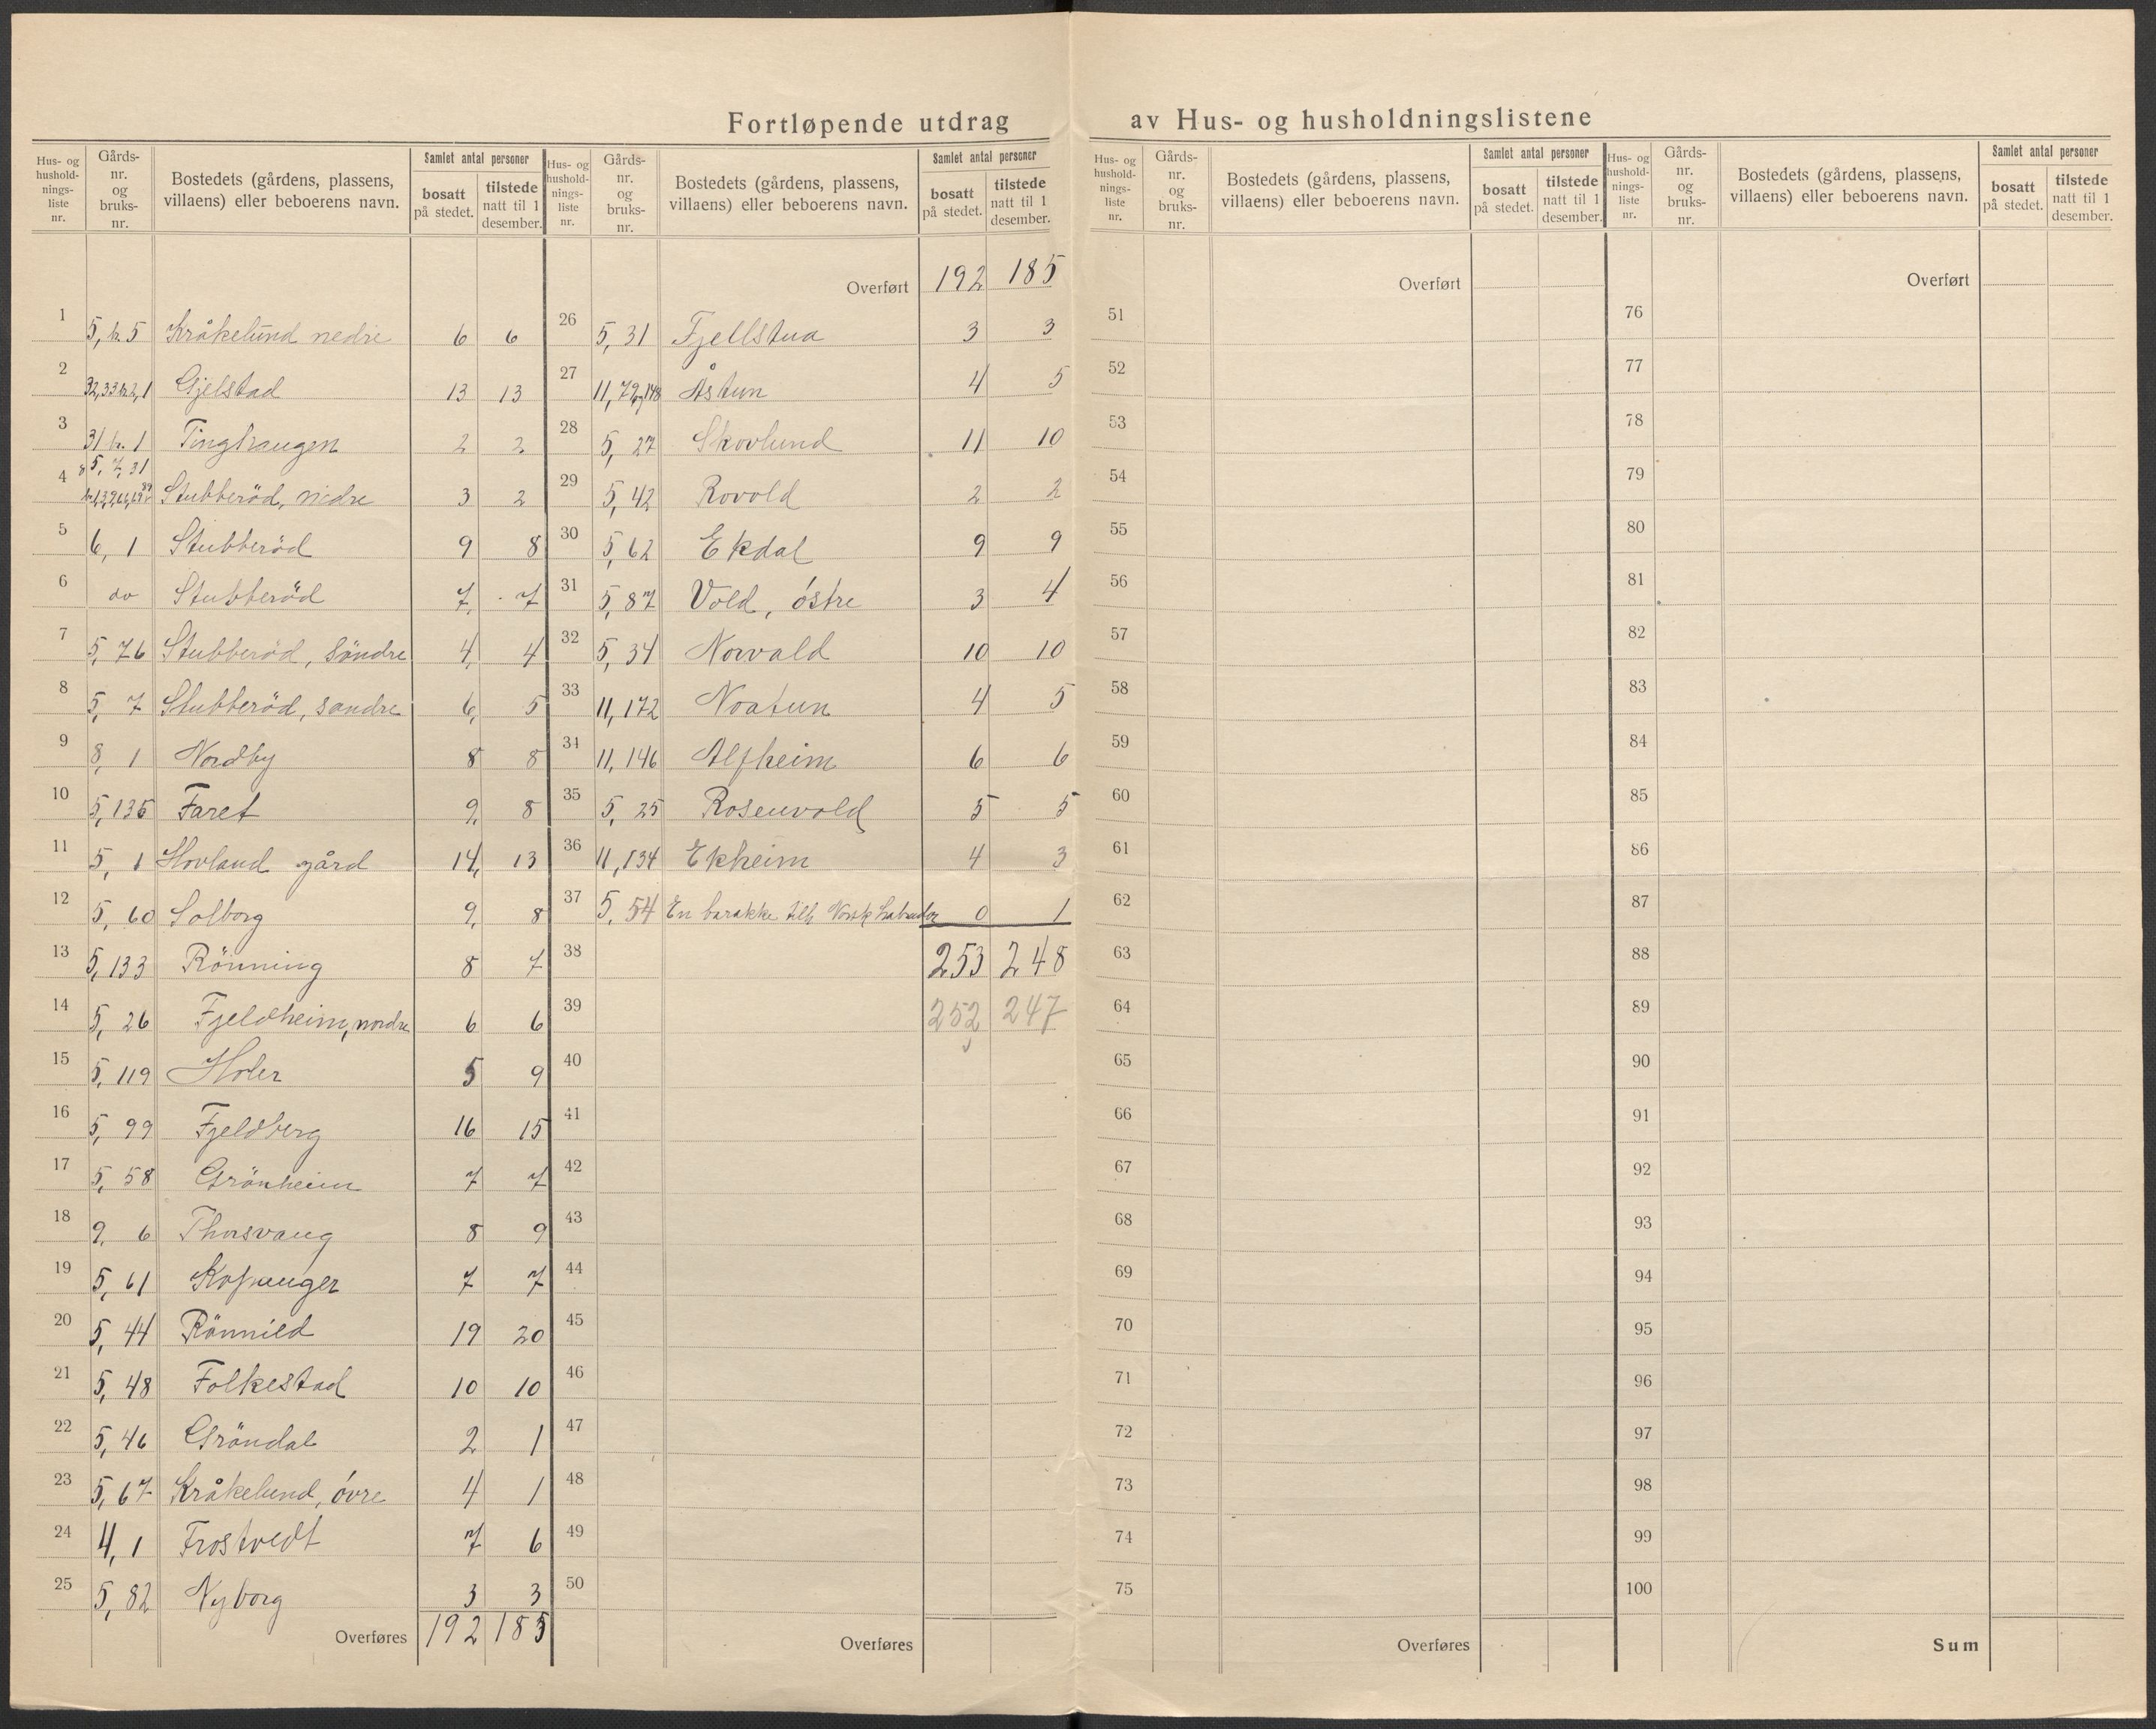 Fortløpende utdrag av Hus- og husholdningslistene
Hus- og hushold- nings- liste nr. | Gårds- nr. og bruks- nr. | Bostedets (gårdens, plassens, villaens) eller beboerens navn. | Samlet antal personer bosatt på stedet. | tilstede natt til 1 desember.
1 5, br. 5 Kråkelund nedre 6 6
2 32, 33 br. 2, 1 Gjelstad 13 13
3 31 br. 1 Tinghaugen 2 2
4 5, 7, 31 Stubberöd, nedre 3 2
5 6, 1 Stubberöd 9 8
6 do Stubberöd 7 7
7 5, 76 Stubberöd, Söndre 4 4
8 5, 7 Stubberöd, söndre 6 5
9 8, 1 Nordby 8 8
10 5, 135 Faret 9 8
11 5, 1 Hovland gård 14 13
12 5, 60 Solborg 9 8
13 5, 133 Rönning 8 7
14 5, 26 Fjeldheim, nordre 6 6
15 5, 119 Holer 5 9
16 5, 99 Fjeldberg 16 15
17 5, 58 Grönheim 7 7
18 9, 6 Thorsvang 8 9
19 5, 61 Kopanger 7 7
20 5, 44 Rönnild 19 20
21 5, 48 Folkestad 10 10
22 5, 46 Gröndal 2 1
23 5, 67 Kråkelund, övre 4 1
24 4, 1 Frostvedt 7 6
25 5, 82 Nyborg 3 3
Overføres 192 185
Hus- og hushold- nings- liste nr. | Gårds- nr. og bruks- nr. | Bostedets (gårdens, plassens, villaens) eller beboerens navn. | Samlet antal personer bosatt på stedet. | tilstede natt til 1 desember.
Overført 192 185
26 5, 31 Fjellstua 3 3
27 11, 79 og 148 Åstun 4 5
28 5, 27 Skovlund 11 10
29 5, 42 Rovold 2 2
30 5, 62 Ekdal 9 9
31 5, 87 Vold, östre 3 4
32 5, 34 Norvald 10 10
33 11, 172 Noatun 4 5
34 11, 146 Alfheim 6 6
35 5, 25 Rosenvold 5 5
36 11, 134 Ekheim 4 3
37 5, 54 En barakke tilh. Norsk Labrador 0 1
38 253 248
39 252 247
40
41
42
43
44
45
46
47
48
49
50
Overføres
Hus- og hushold- nings- liste nr. | Gårds- nr. og bruks- nr. | Bostedets (gårdens, plassens, villaens) eller beboerens navn. | Samlet antal personer bosatt på stedet. | tilstede natt til 1 desember.
Overført
51
52
53
54
55
56
57
58
59
60
61
62
63
64
65
66
67
68
69
70
71
72
73
74
75
Overføres
Hus- og hushold- nings- liste nr. | Gårds- nr. og bruks- nr. | Bostedets (gårdens, plassens, villaens) eller beboerens navn. | Samlet antal personer bosatt på stedet. | tilstede natt til 1 desember.
Overført
76
77
78
79
80
81
82
83
84
85
86
87
88
89
90
91
92
93
94
95
96
97
98
99
100
Sum